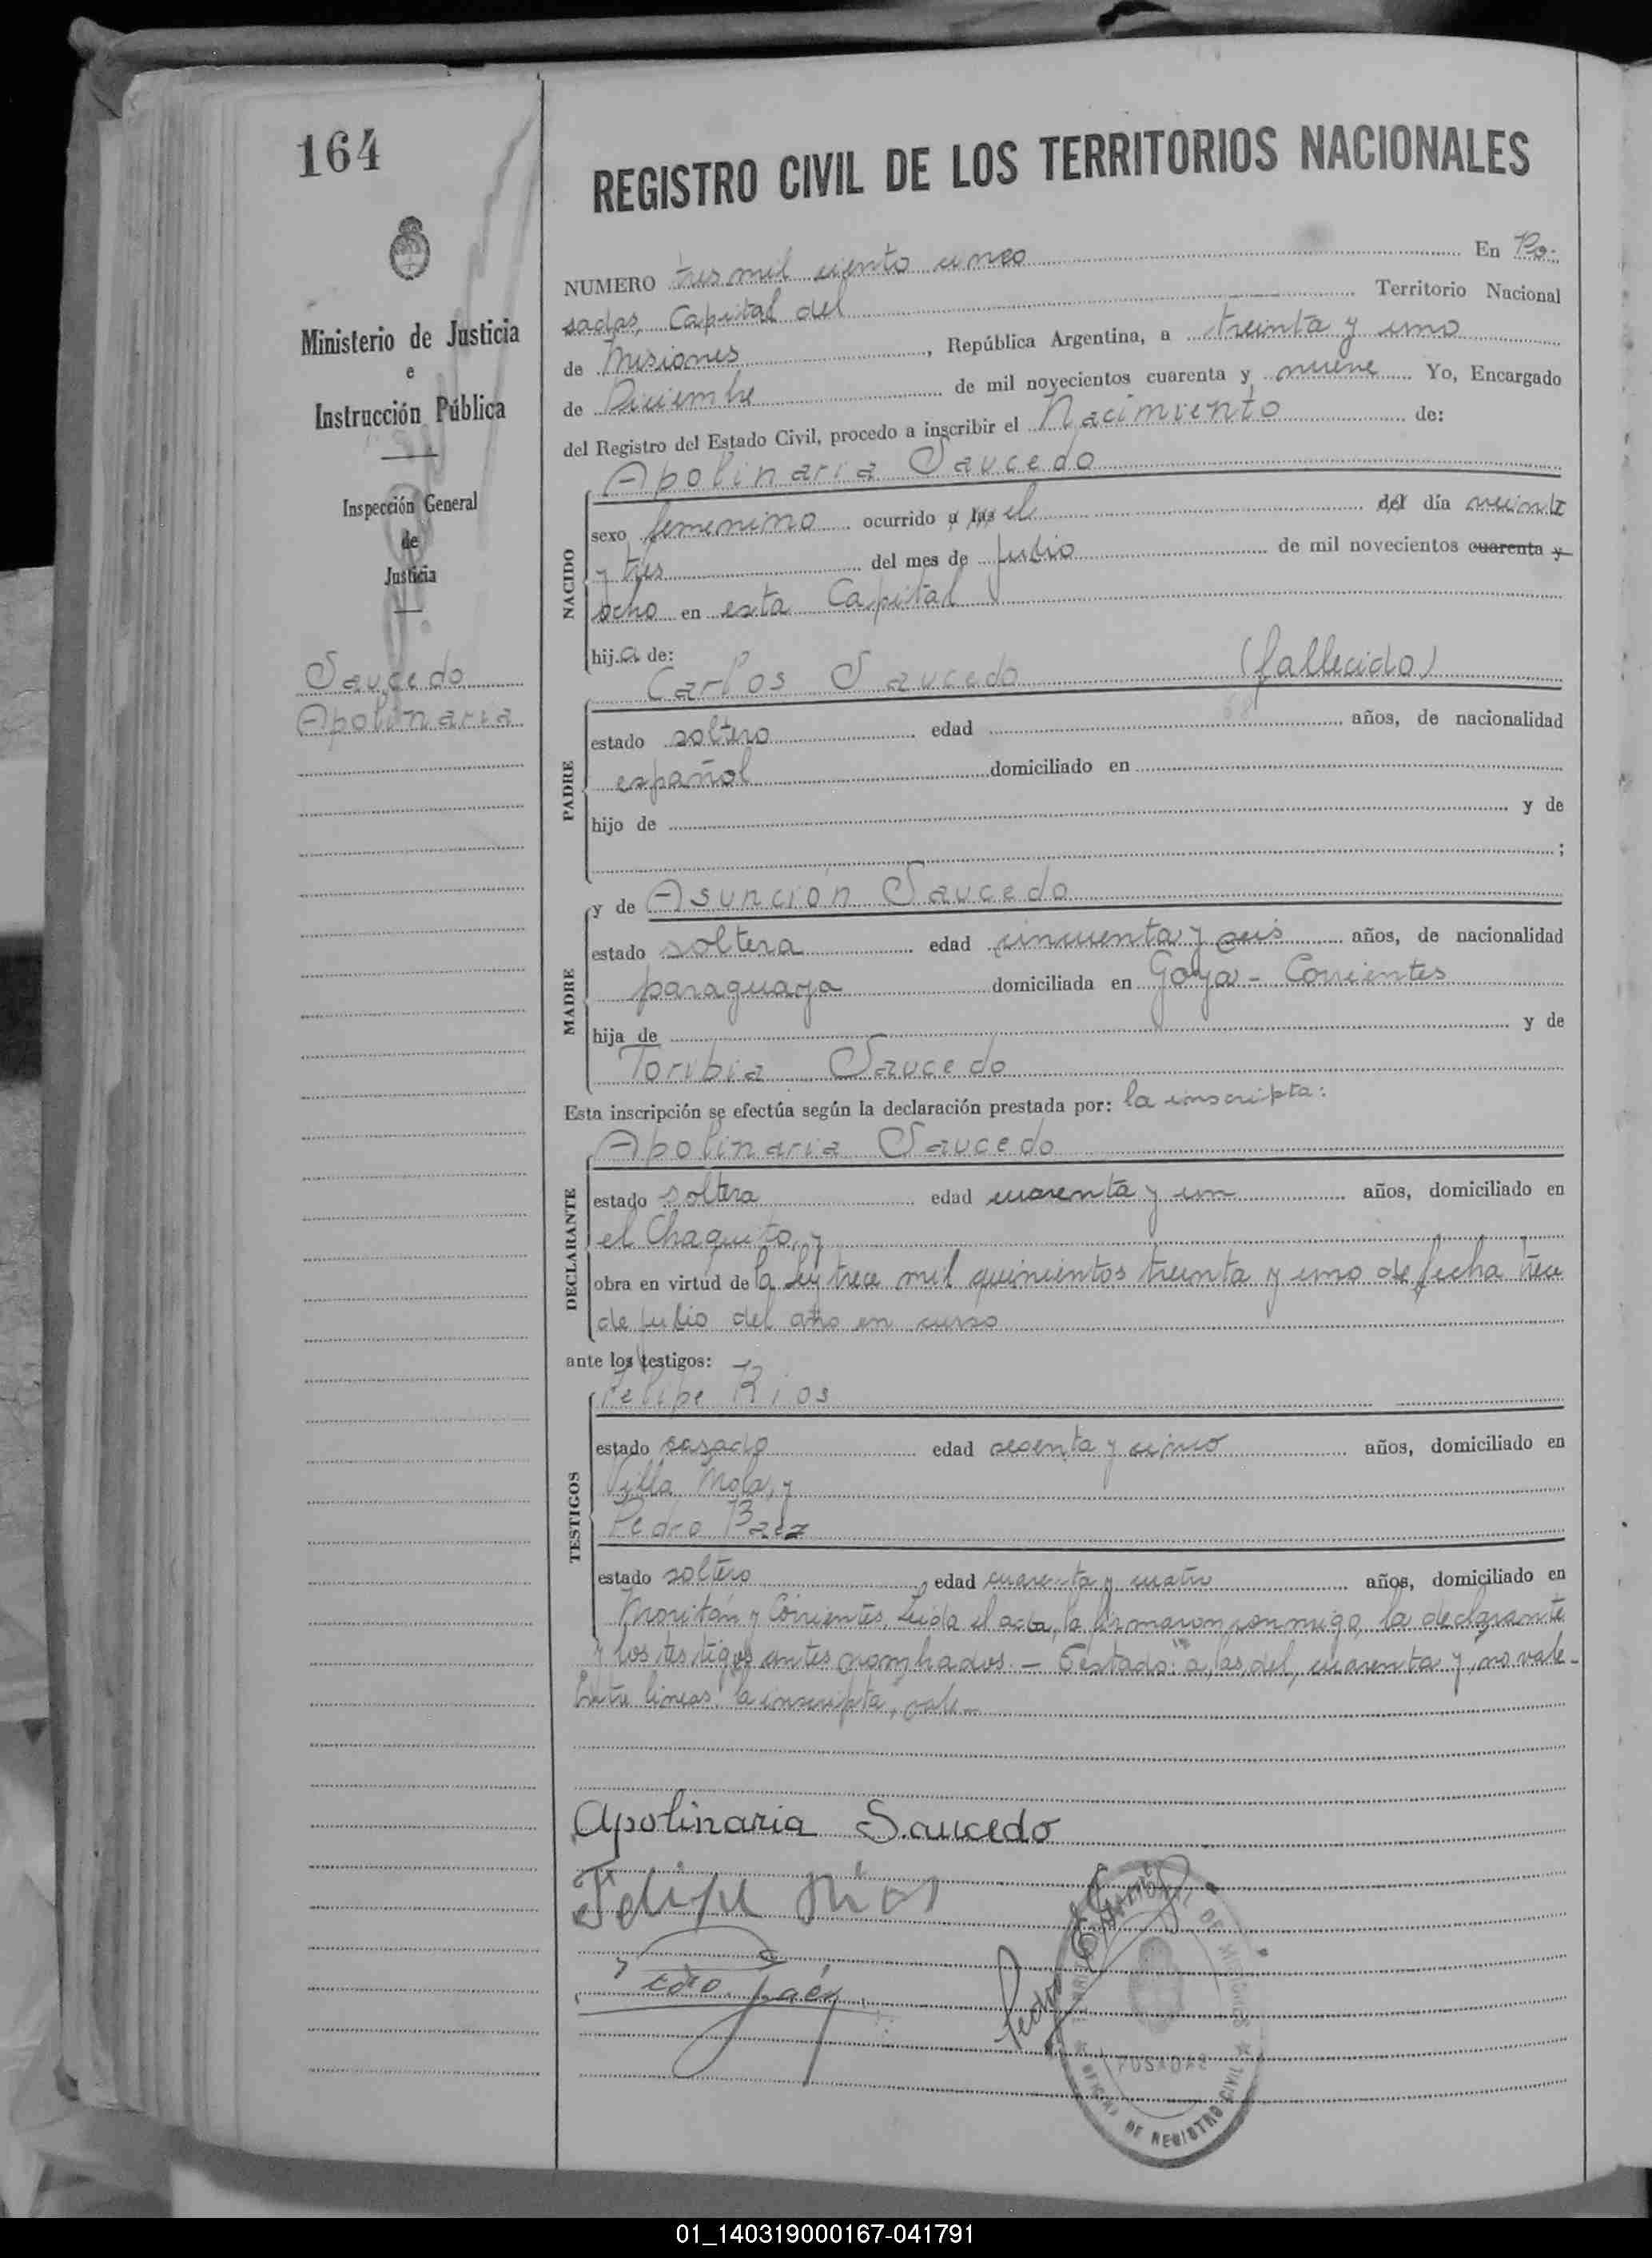 164
REGISTRO CIVIL DE LOS TERRITORIOS NACIONALES
Ministerio de Justicia
e
Instrucción Pública
Inspección General
de
Justicia
Saucedo
Apolinaria
NUMERO tres mil ciento cinco En Po-
sadas, Capital del Territorio Nacional
de Misiones, República Argentina, a treinta y uno
de Diciembre de mil novecientos cuarenta y nueve Yo, Encargado
del Registro del Estado Civil, procedo a inscribir el Nacimiento de:
Apolinaria Saucedo
NACIDO
sexo femenino ocurrido a las el del día veinte
y tres del mes de Julio de mil novecientos cuarenta y
ocho en esta Capital
hija de:
Carlos Saucedo (fallecido)
PADRE
estado soltero edad años, de nacionalidad
español domiciliado en
hijo de y de
;
y de Asunción Saucedo
MADRE
estado soltera edad cincuenta y seis años, de nacionalidad
paraguaya domiciliada en Goya - Corrientes
hija de y de
Toribia Saucedo
Esta inscripción se efectúa según la declaración prestada por: la inscripta:
Apolinaria Saucedo
DECLARANTE
estado soltera edad cuarenta y un años, domiciliado en
el Chaquito, y
obra en virtud de la Ley trece mil quinientos treinta y uno de fecha trece
de Julio del año en curso
ante los testigos:
Felipe Rios
TESTIGOS
estado casado edad sesenta y cinco años, domiciliado en
Villa Mola, y
Pedro Baez
estado soltero, edad cuarenta y cuatro años, domiciliado en
y Corrientes. Leida el acta, la firmaron conmigo, la declarante
y los testigos antes nombrados. - Testado: "a, las, del, cuarenta y, no vale -
Entre lineas "la inscripta, vale -
Apolinaria Saucedo
Felipe Rios
Pedro Báez
POSADAS
OFICINA DE REGISTRO CIVIL
DE MISIONES
01_140319000167-041791